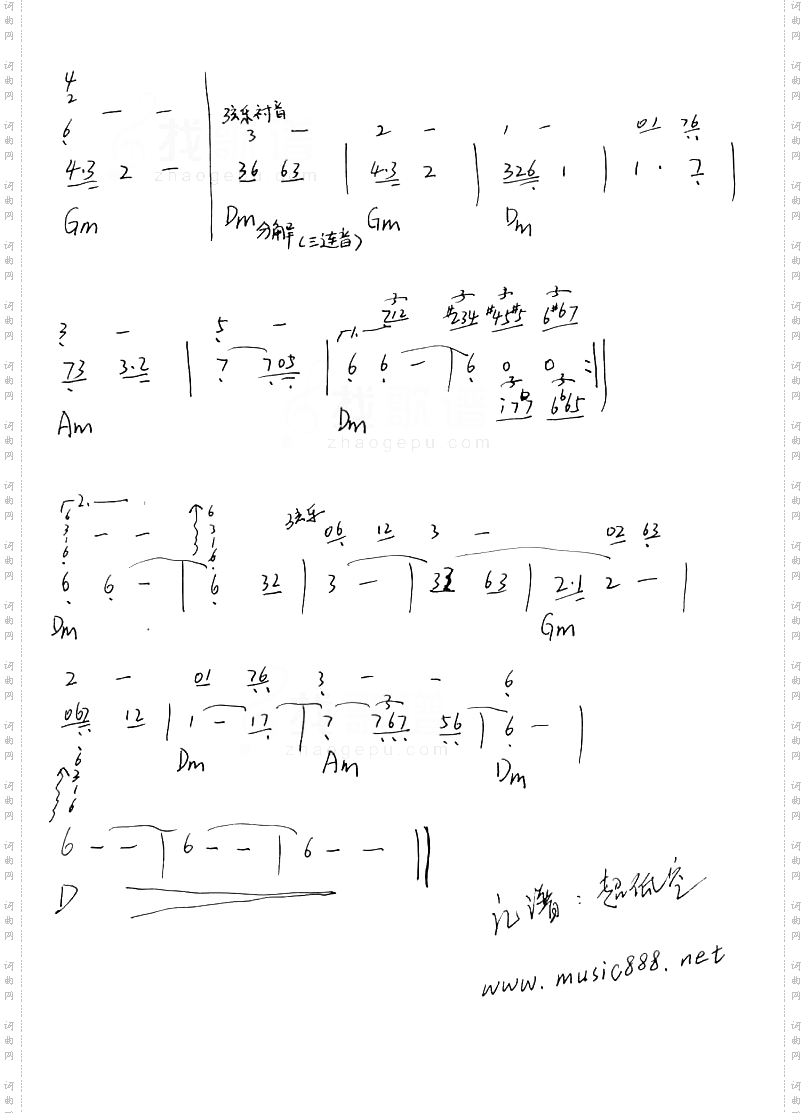 4
2 – –
6
4·3 2 –
Gm
弦乐衬音
3 – 2 – 1 – 01 76
36 63 | 4·3 2 | 326 1 | 1 · 7 |
Dm 分解(三连音) Gm Dm
3 – 5 – 1. 3 3 3 3
212 #234 #45#5 6#67
73 3·2 | 7 705 | 6 6 – | 6 0 0 :||
Am Dm
2.
6
3 – – 6 3 1 6
1
6
弦乐 06 12 3 – 02 63
6 6 – | 6 32 | 3 – | 33 63 | 2·1 2 – |
Dm Gm
2 – 01 76 3 – – 6
062 12 | 1 – 17 | 7 767 56 | 6 – |
Dm Am Dm
6 – – | 6 – – | 6 – – ||
D
记谱:超低空
www.music888.net
找歌谱
zhaogepu.com
词曲网